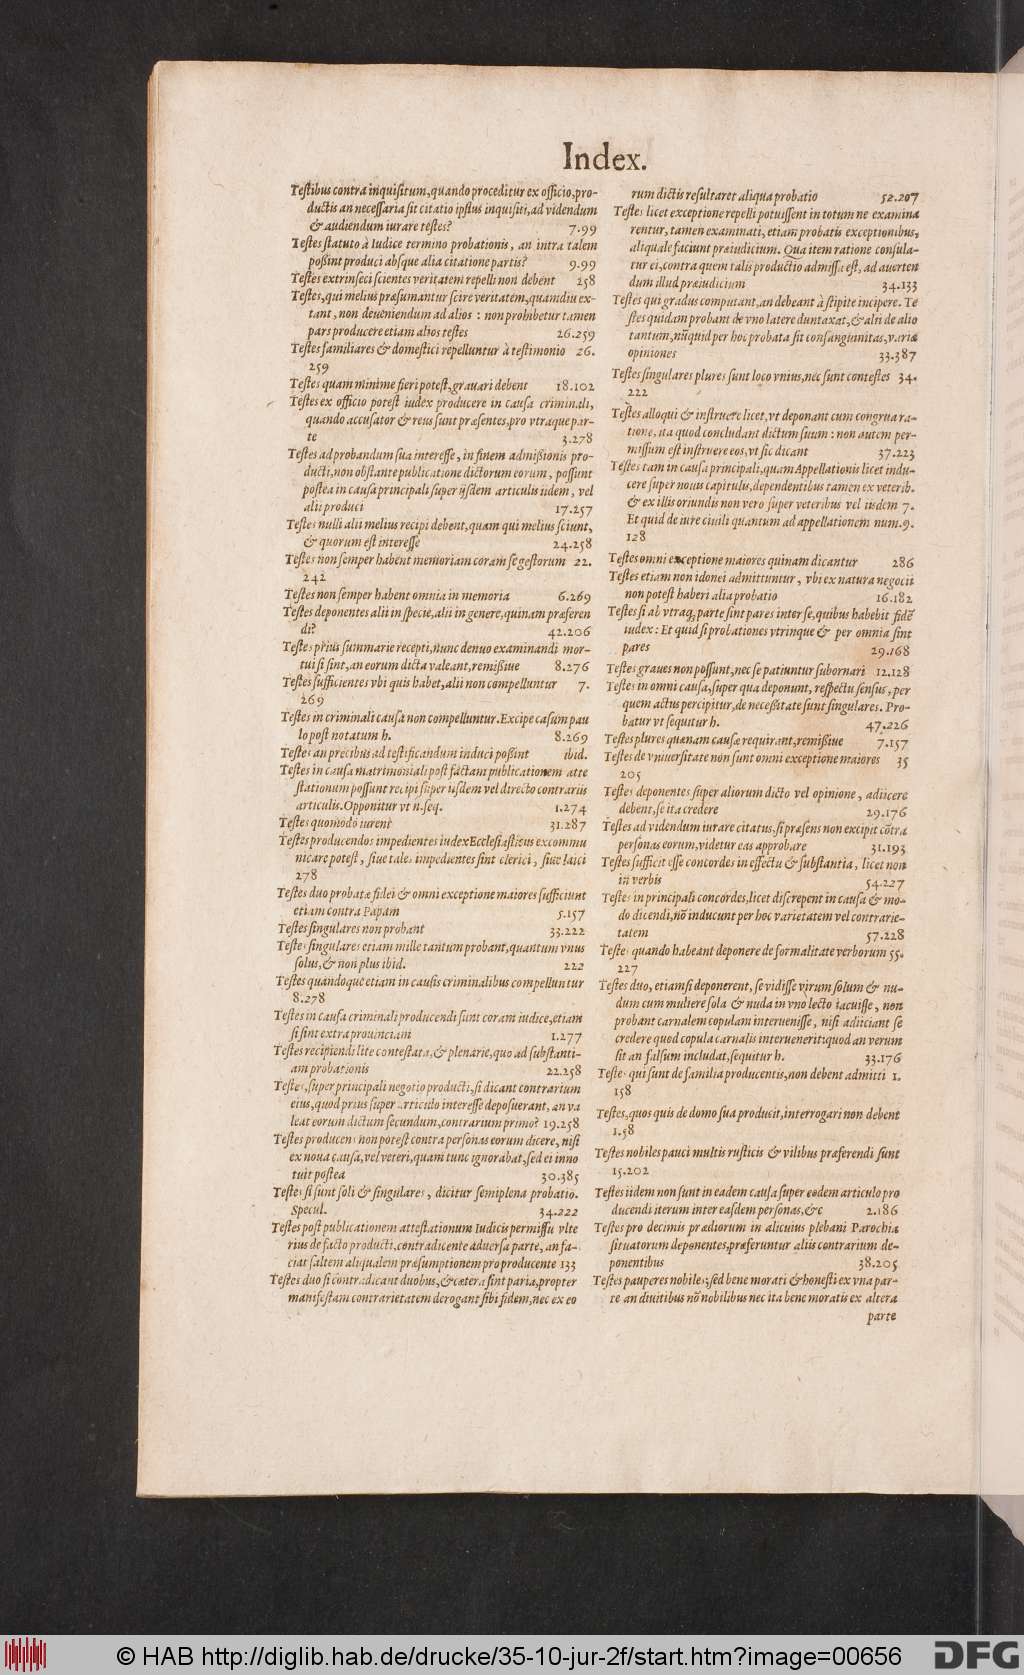 Index.
Testibus contra inquisitum, quando proceditur ex officio, pro-
ductis an necessaria sit citatio ipsius inquisiti, ad videndum
& audiendum iurare testes? 7.99
Testes statuto à Iudice termino probationis, an intra talem
possint produci absque alia citatione partis? 9.99
Testes extrinseci scientes veritatem repelli non debent 258
Testes, qui melius præsumantur scire veritatem, quamdiu ex-
tant, non deueniendum ad alios : non prohibetur tamen
pars producere etiam alios testes 26.259
Testes familiares & domestici repelluntur à testimonio 26.
259
Testes quam minime fieri potest, grauari debent 18.102
Testes ex officio potest iudex producere in causa criminali,
quando accusator & reus sunt præsentes, pro vtraque par-
te 3.278
Testes ad probandum sua interesse, in finem admissionis pro-
ducti, non obstante publicatione dictorum eorum, possunt
postea in causa principali super ijsdem articulis iidem, vel
alii produci 17.257
Testes nulli alii melius recipi debent, quam qui melius sciunt,
& quorum est interesse 24.258
Testes non semper habent memoriam coram se gestorum 22.
242
Testes non semper habent omnia in memoria 6.269
Testes deponentes alii in specie, alii in genere, quinam præferen
di? 42.206
Testes prius summarie recepti, nunc denuo examinandi mor-
tui si sint, an eorum dicta valeant, remissiue 8.276
Testes sufficientes vbi quis habet, alii non compelluntur 7.
269
Testes in criminali causa non compelluntur. Excipe casum pau
lo post notatum h. 8.269
Testes an precibus ad testificandum induci possint ibid.
Testes in causa matrimoniali post factam publicationem atte
stationum possunt recipi super iisdem vel directo contrariis
articulis. Opponitur vt n. seq. 1.274
Testes quomodo iurent 31.287
Testes producendos impedientes iudex Ecclesiasticus excommu
nicare potest, siue tales impedientes sint clerici, siue laici
278
Testes duo probatæ fidei & omni exceptione maiores sufficiunt
etiam contra Papam 5.157
Testes singulares non probant 33.222
Testes singulares etiam mille tantum probant, quantum vnus
solus, & non plus ibid. 222
Testes quandoque etiam in causis criminalibus compelluntur
8.278
Testes in causa criminali producendi sunt coram iudice, etiam
si sint extra prouinciam 1.277
Testes recipiendi lite contestata, & plenarie, quo ad substanti-
am probationis 22.258
Testes, super principali negotio producti, si dicant contrarium
eius, quod prius super articulo interesse deposuerant, an va
leat eorum dictum secundum, contrarium primo? 19.258
Testes producens non potest contra personas eorum dicere, nisi
ex noua causa, vel veteri, quam tunc ignorabat, sed ei inno
tuit postea 30.385
Testes si sunt soli & singulares, dicitur semiplena probatio.
Specul. 34.222
Testes post publicationem attestationum Iudicis permissu vlte
rius de facto producti, contradicente aduersa parte, an fa-
ciat saltem aliqualem præsumptionem pro producente 133
Testes duo si contradicant duobus, & cætera sint paria, propter
manifestam contrarietatem derogant sibi fidem, nec ex eo
rum dictis resultaret aliqua probatio 52.207
Testes licet exceptione repelli potuissent in totum ne examina
rentur, tamen examinati, etiam probatis exceptionibus,
aliquale faciunt præiudicium. Qua item ratione consula-
tur ei, contra quem talis productio admissa est, ad auerten
dum illud præiudicium 34.133
Testes qui gradus computant, an debeant à stipite incipere. Te
stes quidam probant de vno latere duntaxat, & alii de alio
tantum, nũquid per hoc probata sit consanguinitas, variæ
opiniones 33.387
Testes singulares plures sunt loco vnius, nec sunt contestes 34.
222
Testes alloqui & instruere licet, vt deponant cum congrua ra-
tione, ita quod concludant dictum suum : non autem per-
missum est instruere eos, vt sic dicant 37.223
Testes tam in causa principali, quam Appellationis licet indu-
cere super nouis capitulis, dependentibus tamen ex veterib.
& ex illis oriundis non vero super veteribus vel iisdem 7.
Et quid de iure ciuili quantum ad appellationem num. 9.
128
Testes omni exceptione maiores quinam dicantur 286
Testes etiam non idonei admittuntur, vbi ex natura negocii
non potest haberi alia probatio 16.182
Testes si ab vtraq; parte sint pares inter se, quibus habebit fidẽ
iudex: Et quid si probationes vtrinque & per omnia sint
pares 29.168
Testes graues non possunt, nec se patiuntur subornari 12.128
Testes in omni causa, super qua deponunt, respectu sensus, per
quem actus percipitur, de necessitate sunt singulares. Pro-
batur vt sequitur h. 47.226
Testes plures quænam causæ requirant, remissiue 7.157
Testes de vniuersitate non sunt omni exceptione maiores 35
205
Testes deponentes super aliorum dicto vel opinione, adiicere
debent, se ita credere 29.176
Testes ad videndum iurare citatus, si præsens non excipit cõtra
personas eorum, videtur eas approbare 31.193
Testes sufficit esse concordes in effectu & substantia, licet non
in verbis 54.227
Testes in principali concordes, licet discrepent in causa & mo-
do dicendi, nõ inducunt per hoc varietatem vel contrarie-
tatem 57.228
Testes quando habeant deponere de formalitate verborum 55.
227
Testes duo, etiamsi deponerent, se vidisse virum solum & nu-
dum cum muliere sola & nuda in vno lecto iacuisse, non
probant carnalem copulam interuenisse, nisi adiiciant se
credere quod copula carnalis interuenerit: quod an verum
sit an falsum includat, sequitur h. 33.176
Testes qui sunt de familia producentis, non debent admitti 1.
158
Testes, quos quis de domo sua producit, interrogari non debent
1.58
Testes nobiles pauci multis rusticis & vilibus præferendi sunt
15.202
Testes iidem non sunt in eadem causa super eodem articulo pro
ducendi iterum inter easdem personas, &c 2.186
Testes pro decimis prædiorum in alicuius plebani Parochia
situatorum deponentes, præferuntur aliis contrarium de-
ponentibus 38.205
Testes pauperes nobiles; sed bene morati & honesti ex vna par-
te an diuitibus nõ nobilibus nec ita bene moratis ex altera
parte
© HAB http://diglib.hab.de/drucke/35-10-jur-2f/start.htm?image=00656
DFG